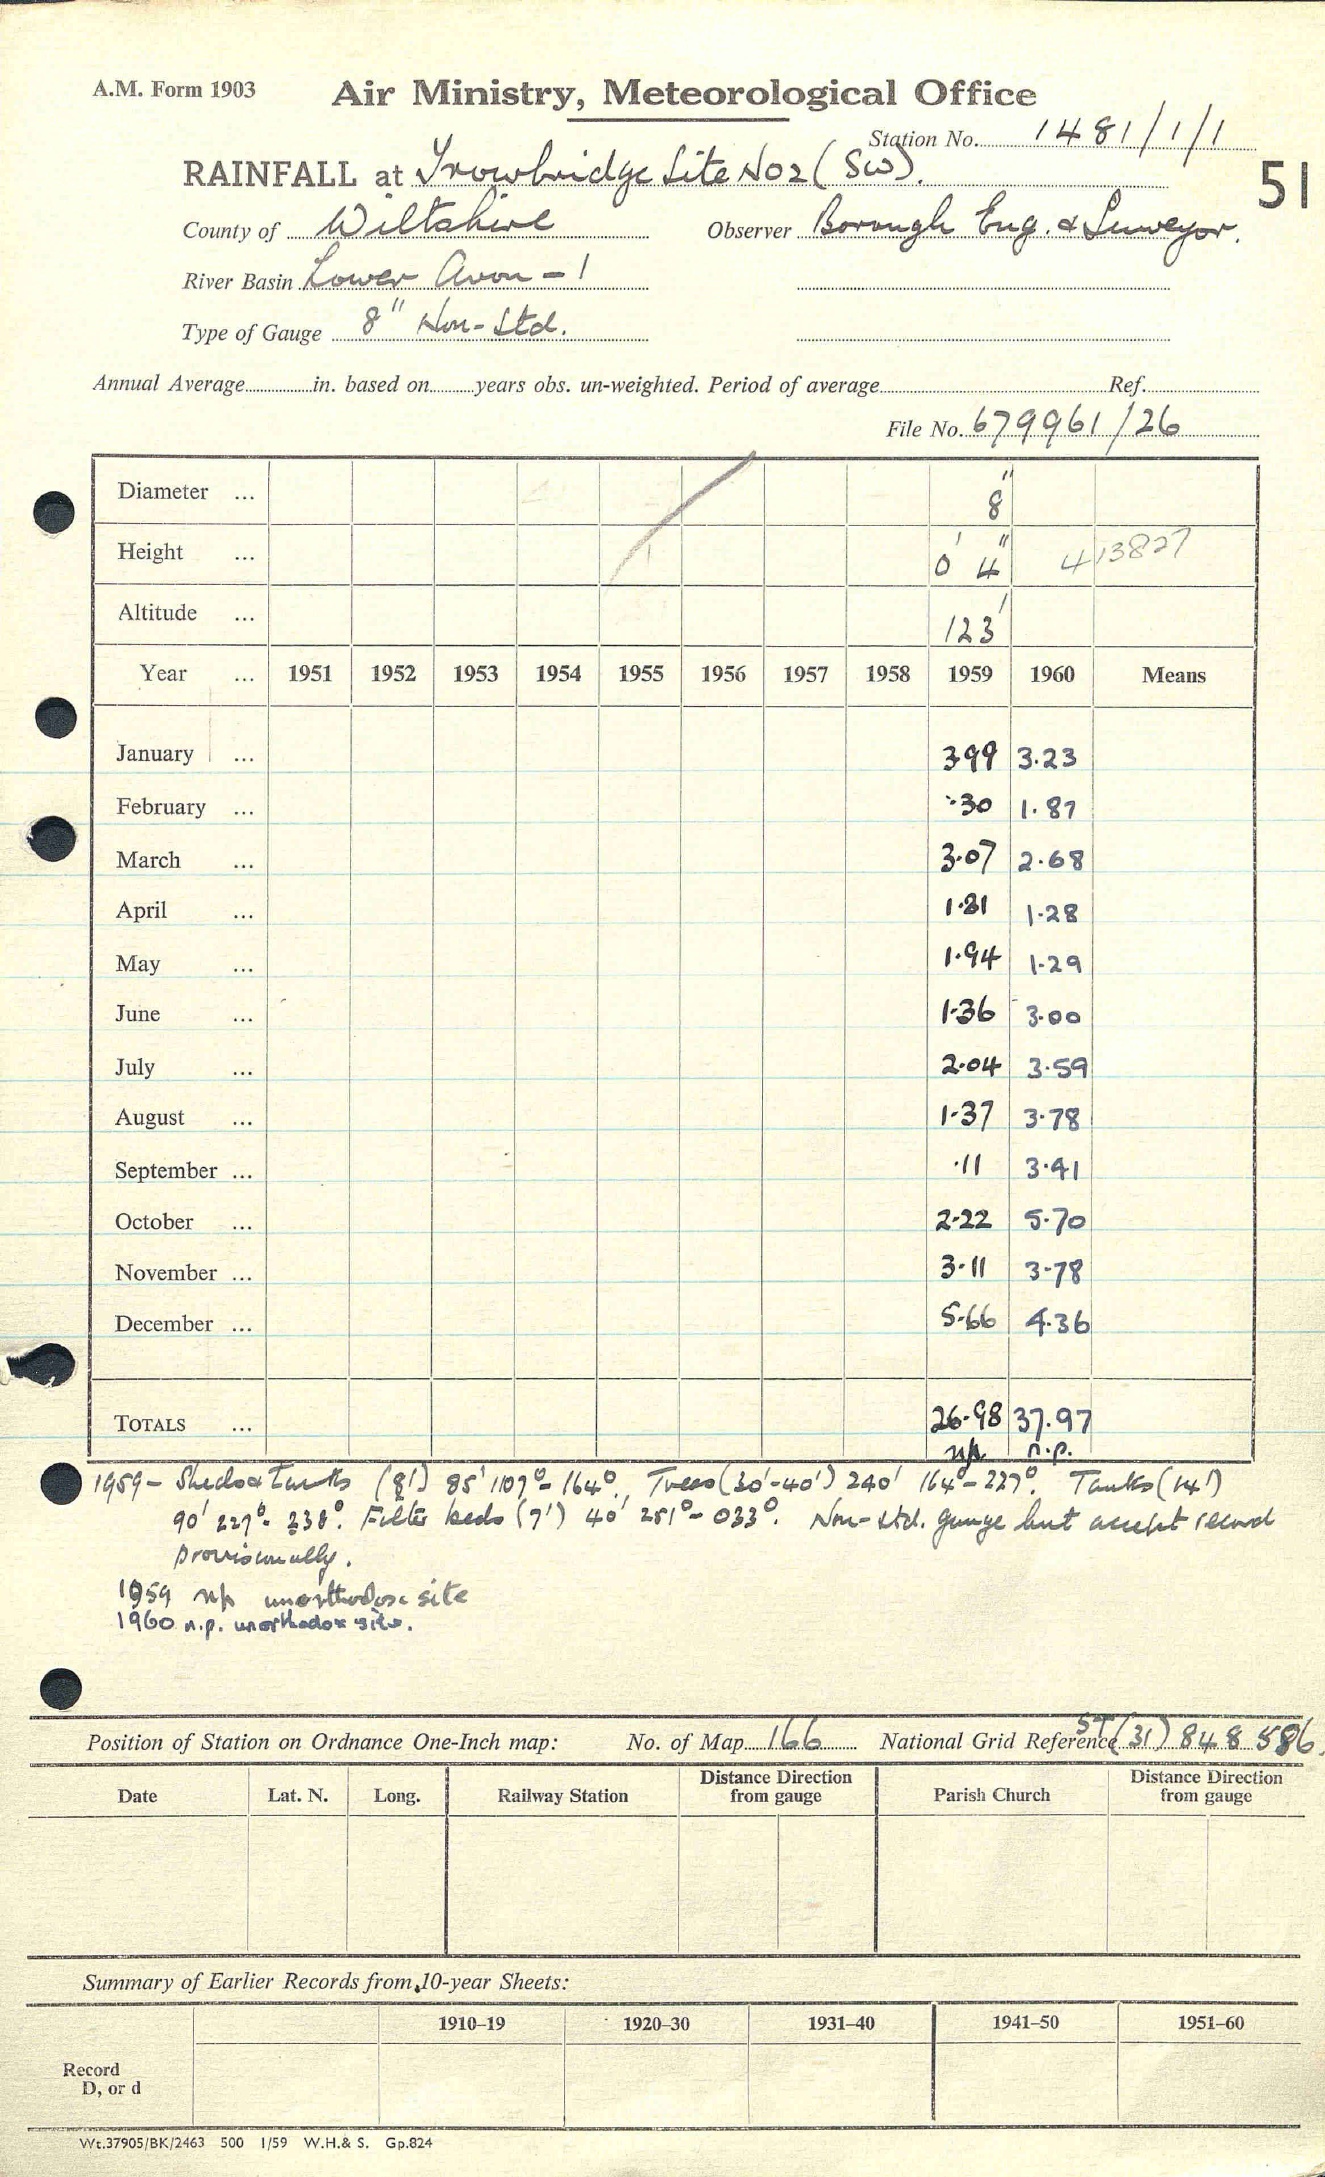 A.M. Form 1903
Air Ministry, Meteorological Office
Station No. 1481/1/1
RAINFALL at Trowbridge Site No2 (SW).
51
County of Wiltshire Observer Borough Eng. & Surveyor.
River Basin Lower Avon - 1
Type of Gauge 8" Non-Std.
Annual Average in. based on years obs. un-weighted. Period of average Ref.
File No. 679961/26
Diameter ... 8"
Height ... 0' 4" 413827
Altitude ... 123'
Year ... 1951 1952 1953 1954 1955 1956 1957 1958 1959 1960 Means
January ... 3.99 3.23
February ... .30 1.87
March ... 3.07 2.68
April ... 1.81 1.28
May ... 1.94 1.29
June ... 1.36 3.00
July ... 2.04 3.59
August ... 1.37 3.78
September ... .11 3.41
October ... 2.22 5.70
November ... 3.11 3.78
December ... 5.66 4.36
TOTALS ... 26.98 37.97
np n.p.
1959 - Sheds & Tanks (8') 85' 107° - 164°. Trees (30'-40') 240' 164° - 227°. Tanks (14')
90' 227° - 238°. Filter beds (7') 40' 251° - 033°. Non-std. gauge but accept record
provisionally.
1959 np unorthodox site
1960 n.p. unorthodox site.
Position of Station on Ordnance One-Inch map: No. of Map 166 National Grid Reference ST (31) 848 586
Date Lat. N. Long. Railway Station Distance Direction from gauge Parish Church Distance Direction from gauge
Summary of Earlier Records from 10-year Sheets:
1910–19 1920–30 1931–40 1941–50 1951–60
Record
D, or d
Wt.37905/BK/2463 500 1/59 W.H.& S. Gp.824